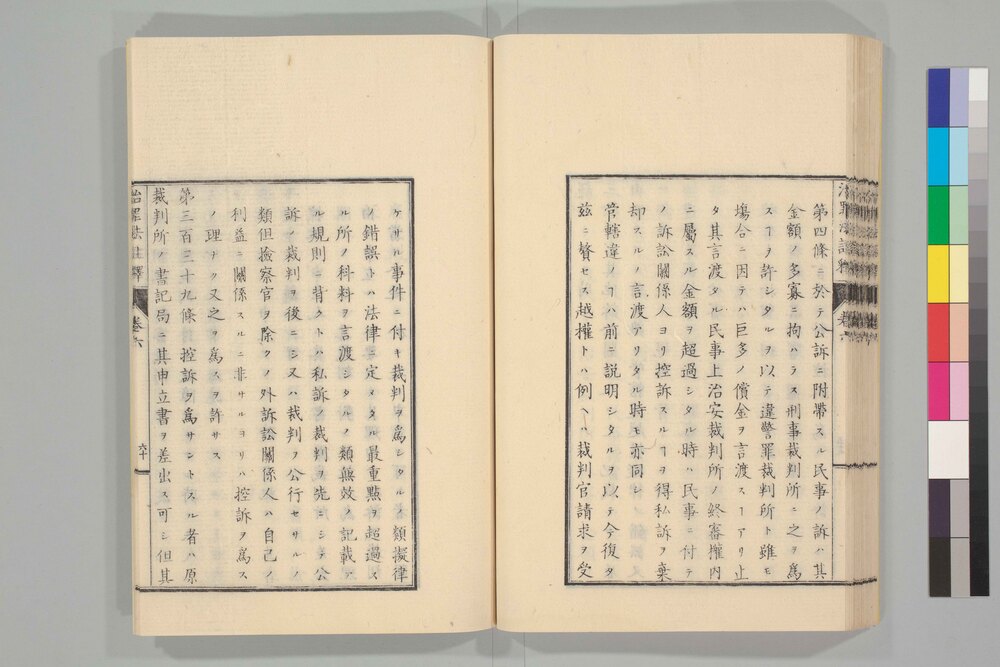 第四條ニ於テ公訴ニ附帶スル民事ノ訴ハ其
金額ノ多寡ニ拘ハラス刑事裁判所ニ之ヲ爲
スヿヲ許シタルヲ以テ違警罪裁判所ト雖モ
塲合ニ因テハ巨多ノ償金ヲ言渡スヿアリ止
タ其言渡タル民事上治安裁判所ノ終審權内
ニ屬スル金額ヲ超過シタル時ハ民事ニ付テ
ノ訴訟關係人ヨリ控訴スルヿヲ得私訴ヲ棄
却スルノ言渡アリタル時モ亦同シ
管轄違ノヿハ前ニ説明シタルヲ以テ今復タ
玆ニ贅セス越權トハ例ヘハ裁判官請求ヲ受
ケサル事件ニ付キ裁判ヲ爲シタルノ類擬律
ノ錯誤トハ法律ニ定メタル最重點ヲ超過ス
ル所ノ科料ヲ言渡シタルノ類無效ノ記載ア
ル規則ニ背クトハ私訴ノ裁判ヲ先ニシテ公
訴ノ裁判ヲ後ニシ又ハ裁判ヲ公行セサルノ
類但撿察官ヲ除クノ外訴訟關係人ハ自己ノ
利益ニ關係スルニ非サルヨリハ控訴ヲ爲ス
ノ理ナク又之ヲ爲スヲ許サス
第三百三十九條 控訴ヲ爲サントスル者ハ原
裁判所ノ書記局ニ其申立書ヲ差出ス可シ但其
治罪法註釋 卷六 六十